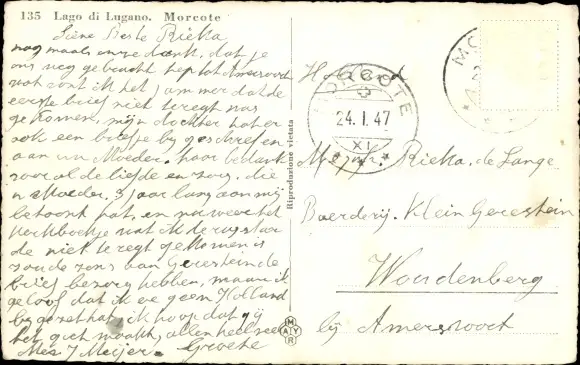 135 Lago di Lugano. Morcote
Liêve Beste Rieka
nog maals onze dank, dat je
ons weg gebracht hep tot Amersoort
wat vont ik het jammer dat de
eerste brief niet teregt was
gekomen, mijn dochter hat er
ook een briefje by geschrefen
aan uw Moeder. haar bedankt
voor al de liefde en zorg, die
u Moeder. 3 jaar lang aan mij
betoont hat, en nu weer het
de niet te regt gekomen is
zoude zons aan Gerestein de
brief bezorg hebben, maar ik
geloof dat ik er geen Holland
by gezet hat, ik hoop dat gij
het goet maakt, allen heel veel
Groete
Mes J Meijer.
Riproduzione vietata
MAYR
Holland
MORCOTE
24.I.47
XI
MO
Mejufr. Rieka. de Lange
Boerderij. Klein Gerestein
Woudenberg
bij Amersvoort